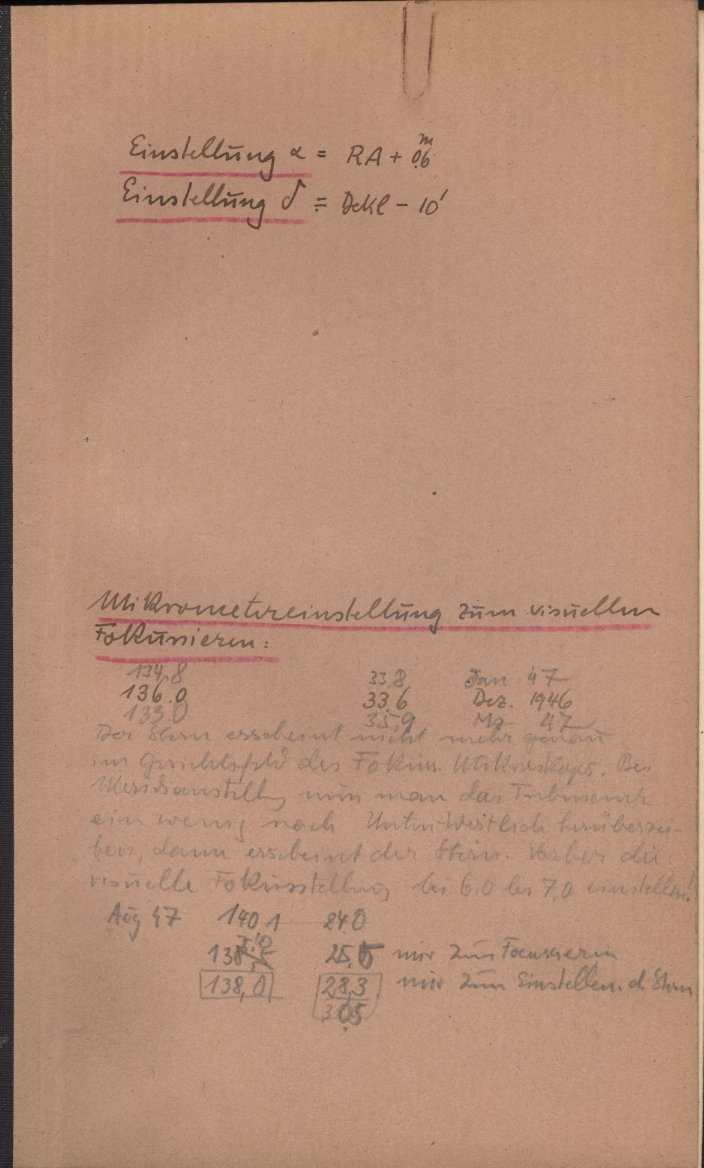 Einstellung α = RA + 0.6ᵐ
Einstellung δ = Dekl − 10'
Mikrometereinstellung zum visuellen
Fokussieren:
134.8 33.8 Jan 47
136.0 33.6 Dez. 1946
133.0 35.9 Mz 47
Der Stern erscheint nicht mehr genau
im Gesichtsfeld des Fokus. Mikroskops. Bei
Meridianstellg muss man das Tubusende
ein wenig nach Westlich herüberzie-
hen, dann erscheint der Stern. die
visuelle Fokusstellung bei 6,0 bis 7,0 einstellen!
Aug 47 140 1 24 0
138 25,5 nur zum Focussieren
138,0 28,3 nur zum Einstellen d. Stern
30,5